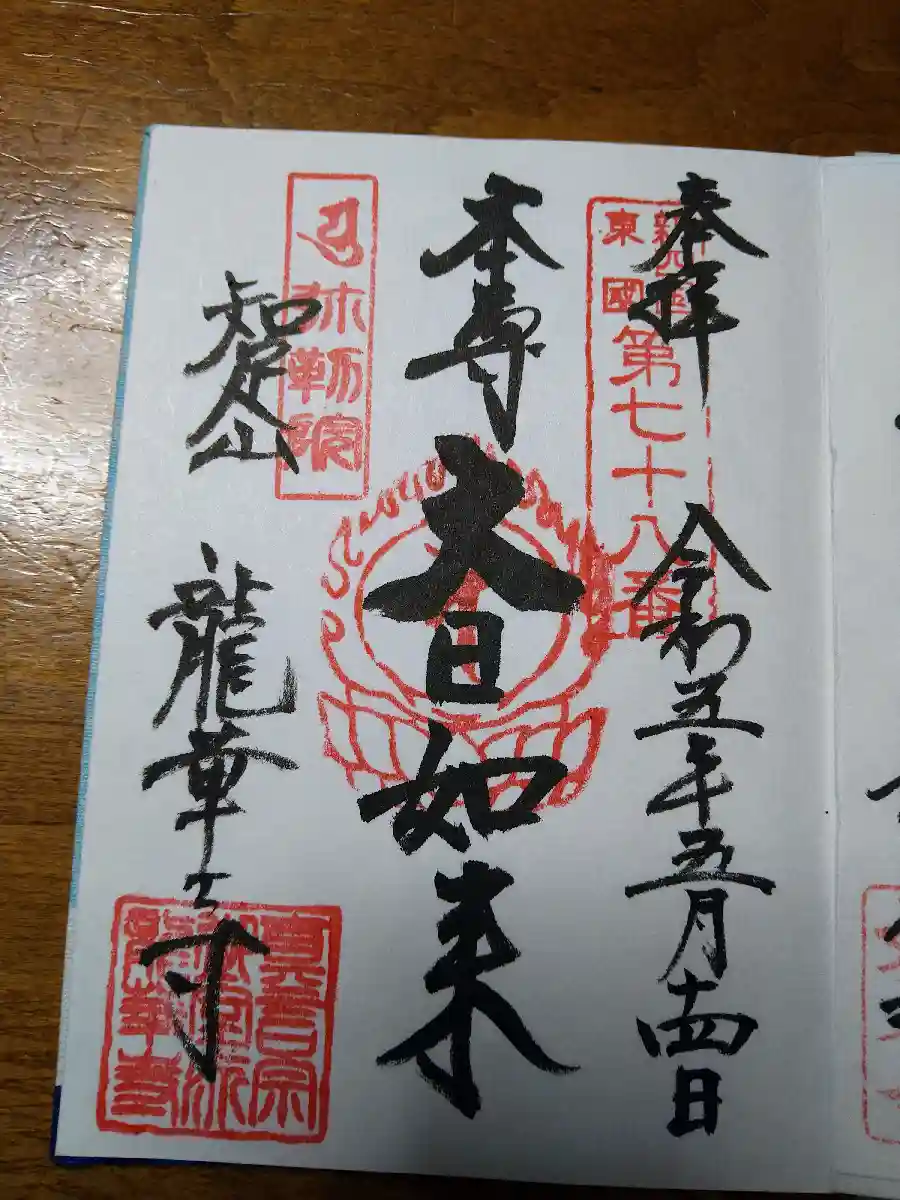 奉拝
令和五年五月十四日
新四國
東國
第七十八番
本尊
大日如来
弥勒院
知足山
龍華寺
真言宗
御室派
龍華寺